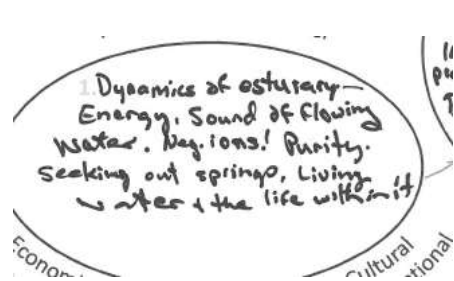 1. Dynamics of esturary—
Energy, Sound of Flowing
Water. Neg. ions! Purity.
Seeking out springs, Living
water & the life within it
Econom
Cultural
tional